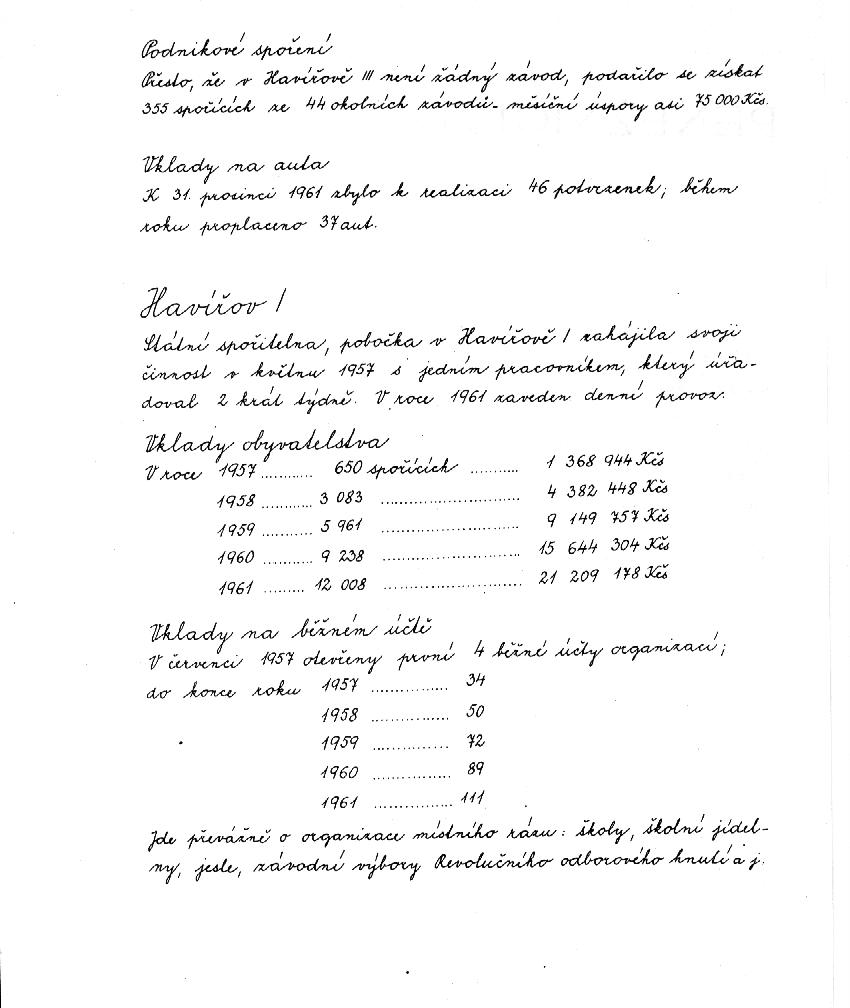 Podnikové spoření
Přesto, že v Havířově III není žádný závod, podařilo se získat
355 spořících ze 44 okolních závodů - měsíční úspory asi 75 000 Kčs.
Vklady na auta
K 31. prosinci 1961 zbylo k realizaci 46 potvrzenek; během
roku proplaceno 37 aut.
Havířov I
Státní spořitelna, pobočka v Havířově I zahájila svoji
činnost v květnu 1957 s jedním pracovníkem, který úřa-
doval 2 krát týdně. V roce 1961 zaveden denní provoz.
Vklady obyvatelstva
V roce 1957 ............ 650 spořících ........... 1 368 944 Kčs
1958 ............ 3 083 .............................. 4 382 448 Kčs
1959 ............ 5 961 .............................. 9 149 757 Kčs
1960 ............ 9 238 .............................. 15 644 304 Kčs
1961 ......... 12 008 .............................. 21 209 178 Kčs
Vklady na běžném účtě
V červenci 1957 otevřeny první 4 běžné účty organizací;
do konce roku 1957 ................ 34
1958 ................ 50
1959 ................ 72
1960 ................ 89
1961 ................ 111
Jde převážně o organizace místního rázu: školy, školní jídel-
ny, jesle, závodní výbory Revolučního odborového hnutí a j.